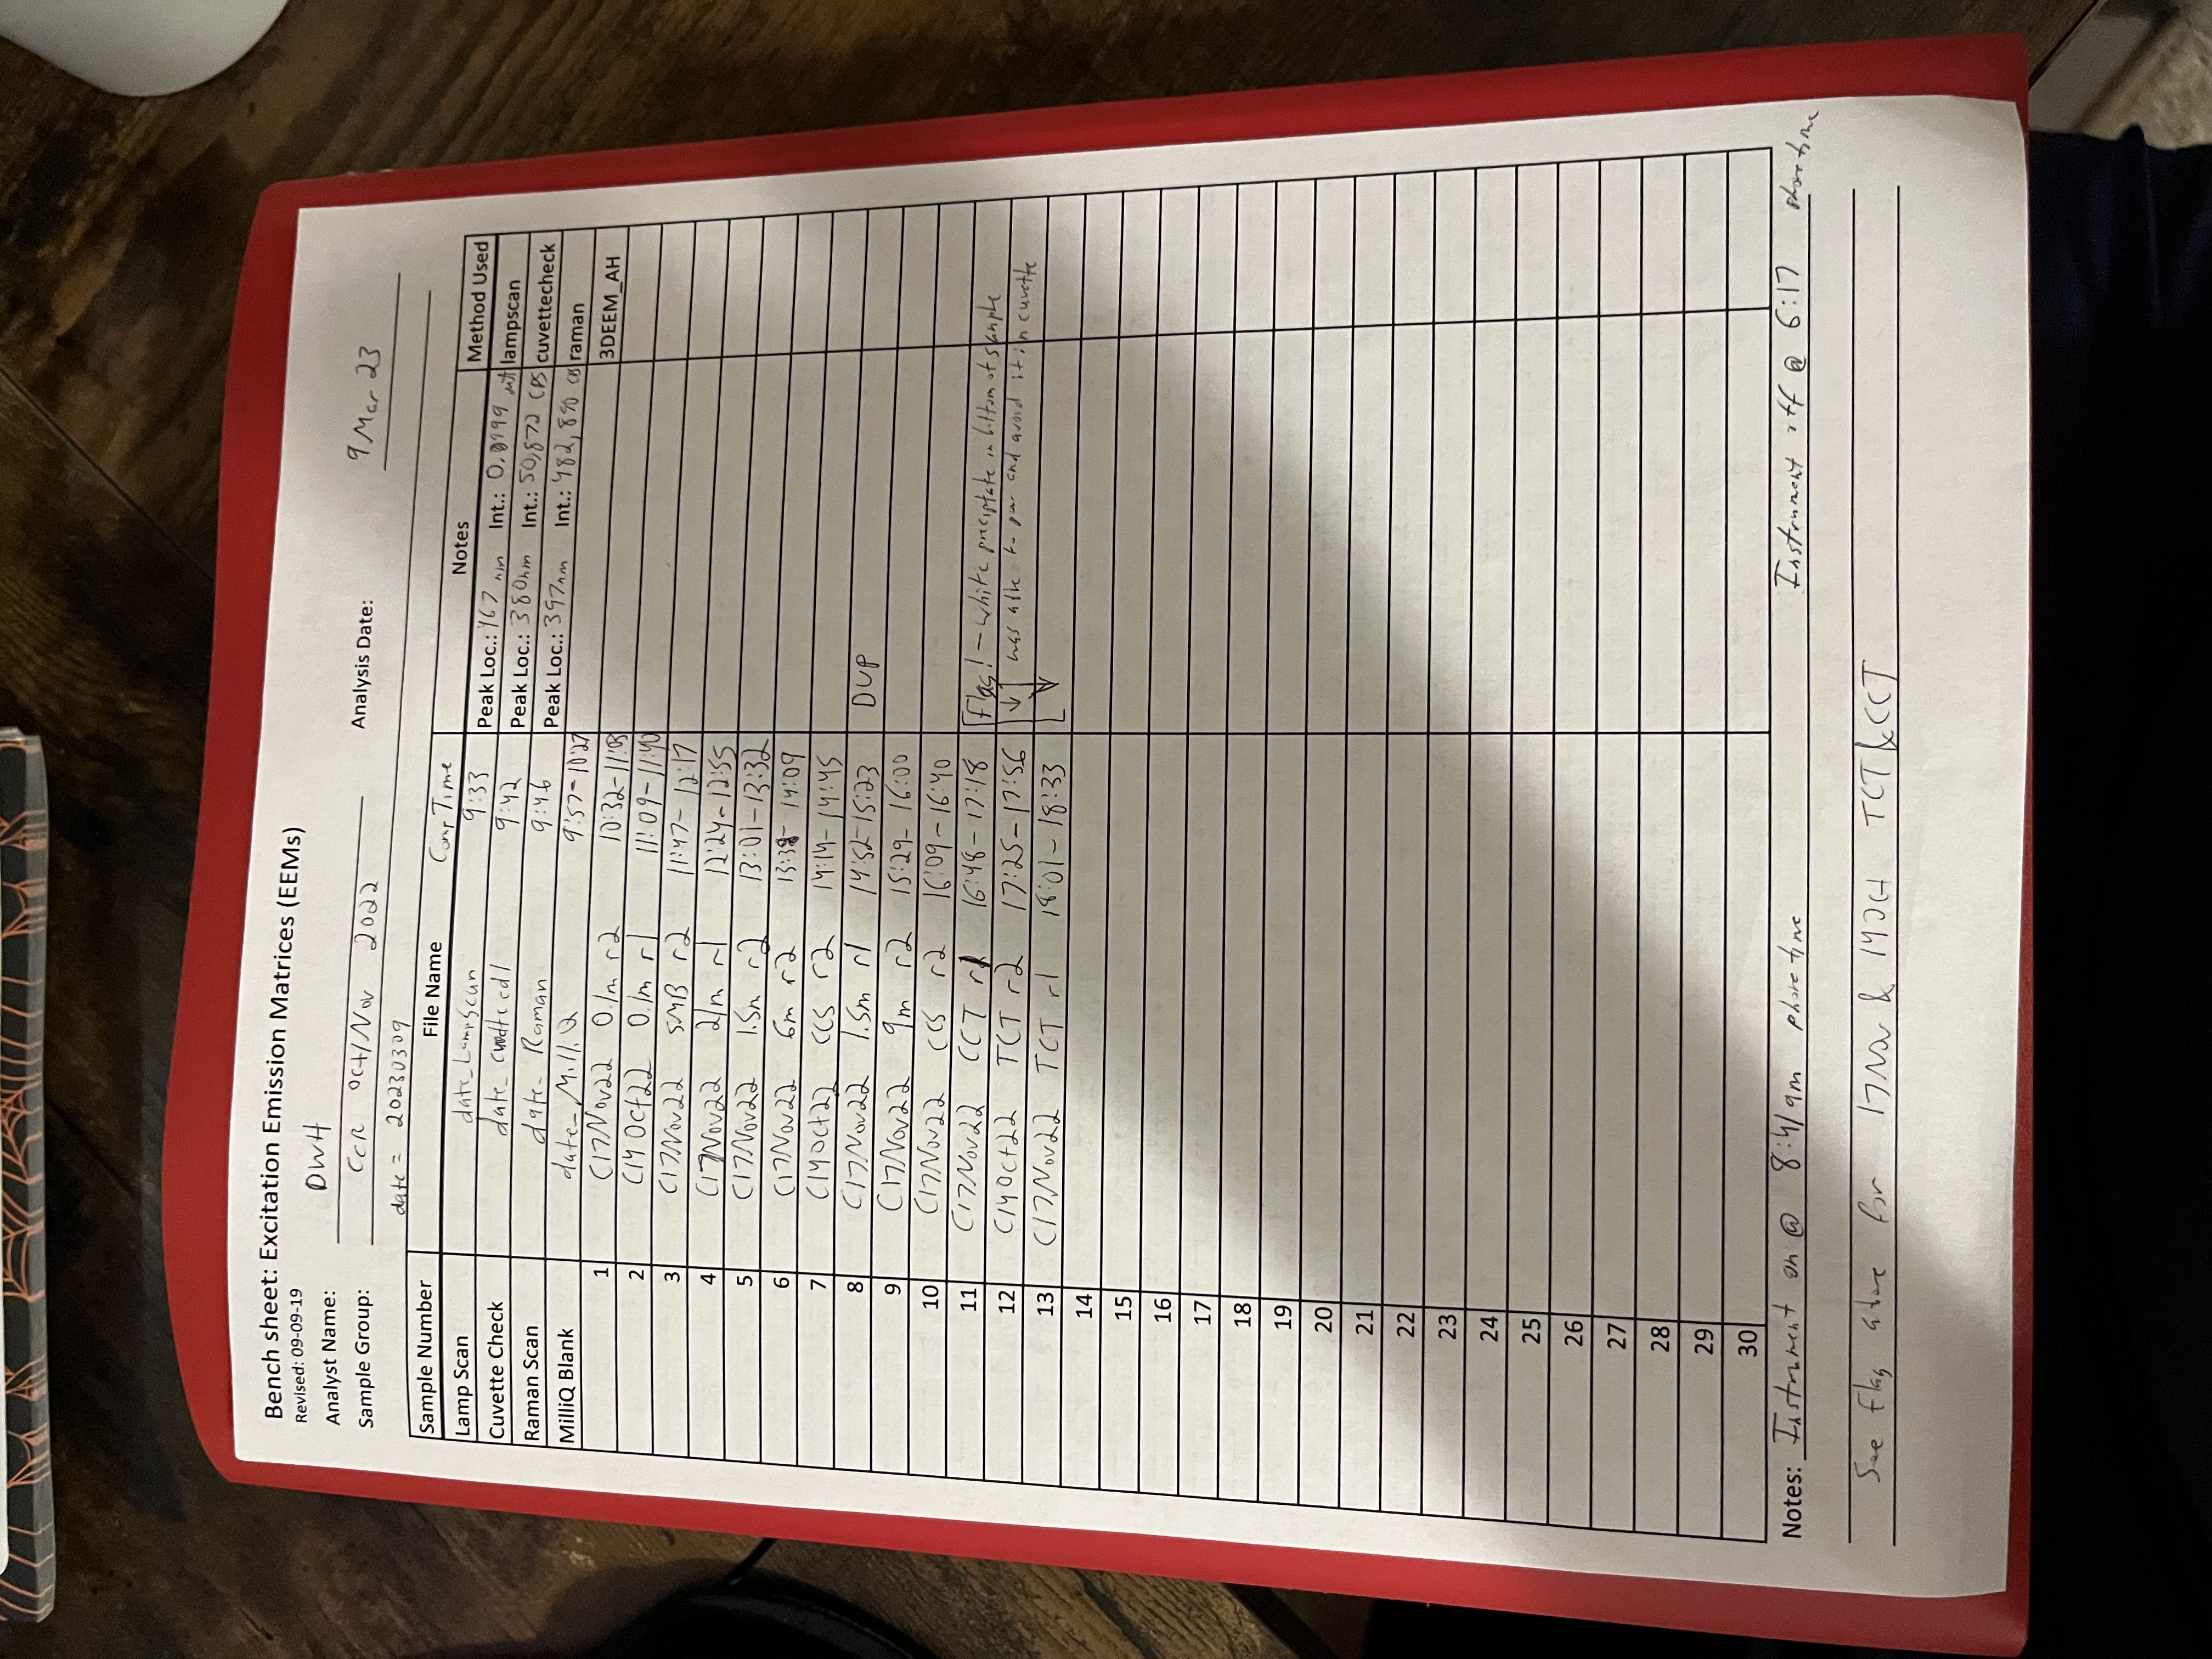 Bench sheet: Excitation Emission Matrices (EEMs)
Revised: 09-09-19
Analyst Name: DWH
Sample Group: CCR Oct/Nov 2022 Analysis Date: 9 Mar 23
date = 20230309
Sample Number File Name Comp Time Notes Method Used
Lamp Scan date_LampScan 9:33 Peak Loc.: 467 nm Int.: lampscan
Cuvette Check 9:42 Peak Loc.: 380nm Int.: 50,872 CPS cuvettecheck
Raman Scan date_Raman 9:46 Peak Loc.: 397nm Int.: raman
MilliQ Blank date_MilliQ 9:57-10:27 3DEEM_AH
1 C17Nov22 0.1m r2 10:32-11:03
2 C14Oct22 0.1m r1 11:09-11:40
3 C17Nov22 SMB r2 11:47-12:17
4 C17Nov22 21m r1 12:24-12:55
5 C17Nov22 1.5m r2 13:01-13:32
6 C17Nov22 6m r2 13:38-14:09
7 C14Oct22 CCS r2 14:14-14:45
8 C17Nov22 1.5m r1 14:52-15:23 DUP
9 C17Nov22 9m r2 15:29-16:00
10 C17Nov22 CCS r2 16:09-16:40
11 C17Nov22 CCT r1 16:48-17:18 Flag! - white preciptate in bottom of sample
12 C14Oct22 TCT r2 17:25-17:56 was able to pour and avoid it in cuvette
13 C17Nov22 TCT r1 18:01-18:33
14
15
16
17
18
19
20
21
22
23
24
25
26
27
28
29
30
Notes: Instrument on @ 8:41am phone time Instrument off @ 6:17 phone time
See flag above for 17Nov & 14Oct TCT & CCT